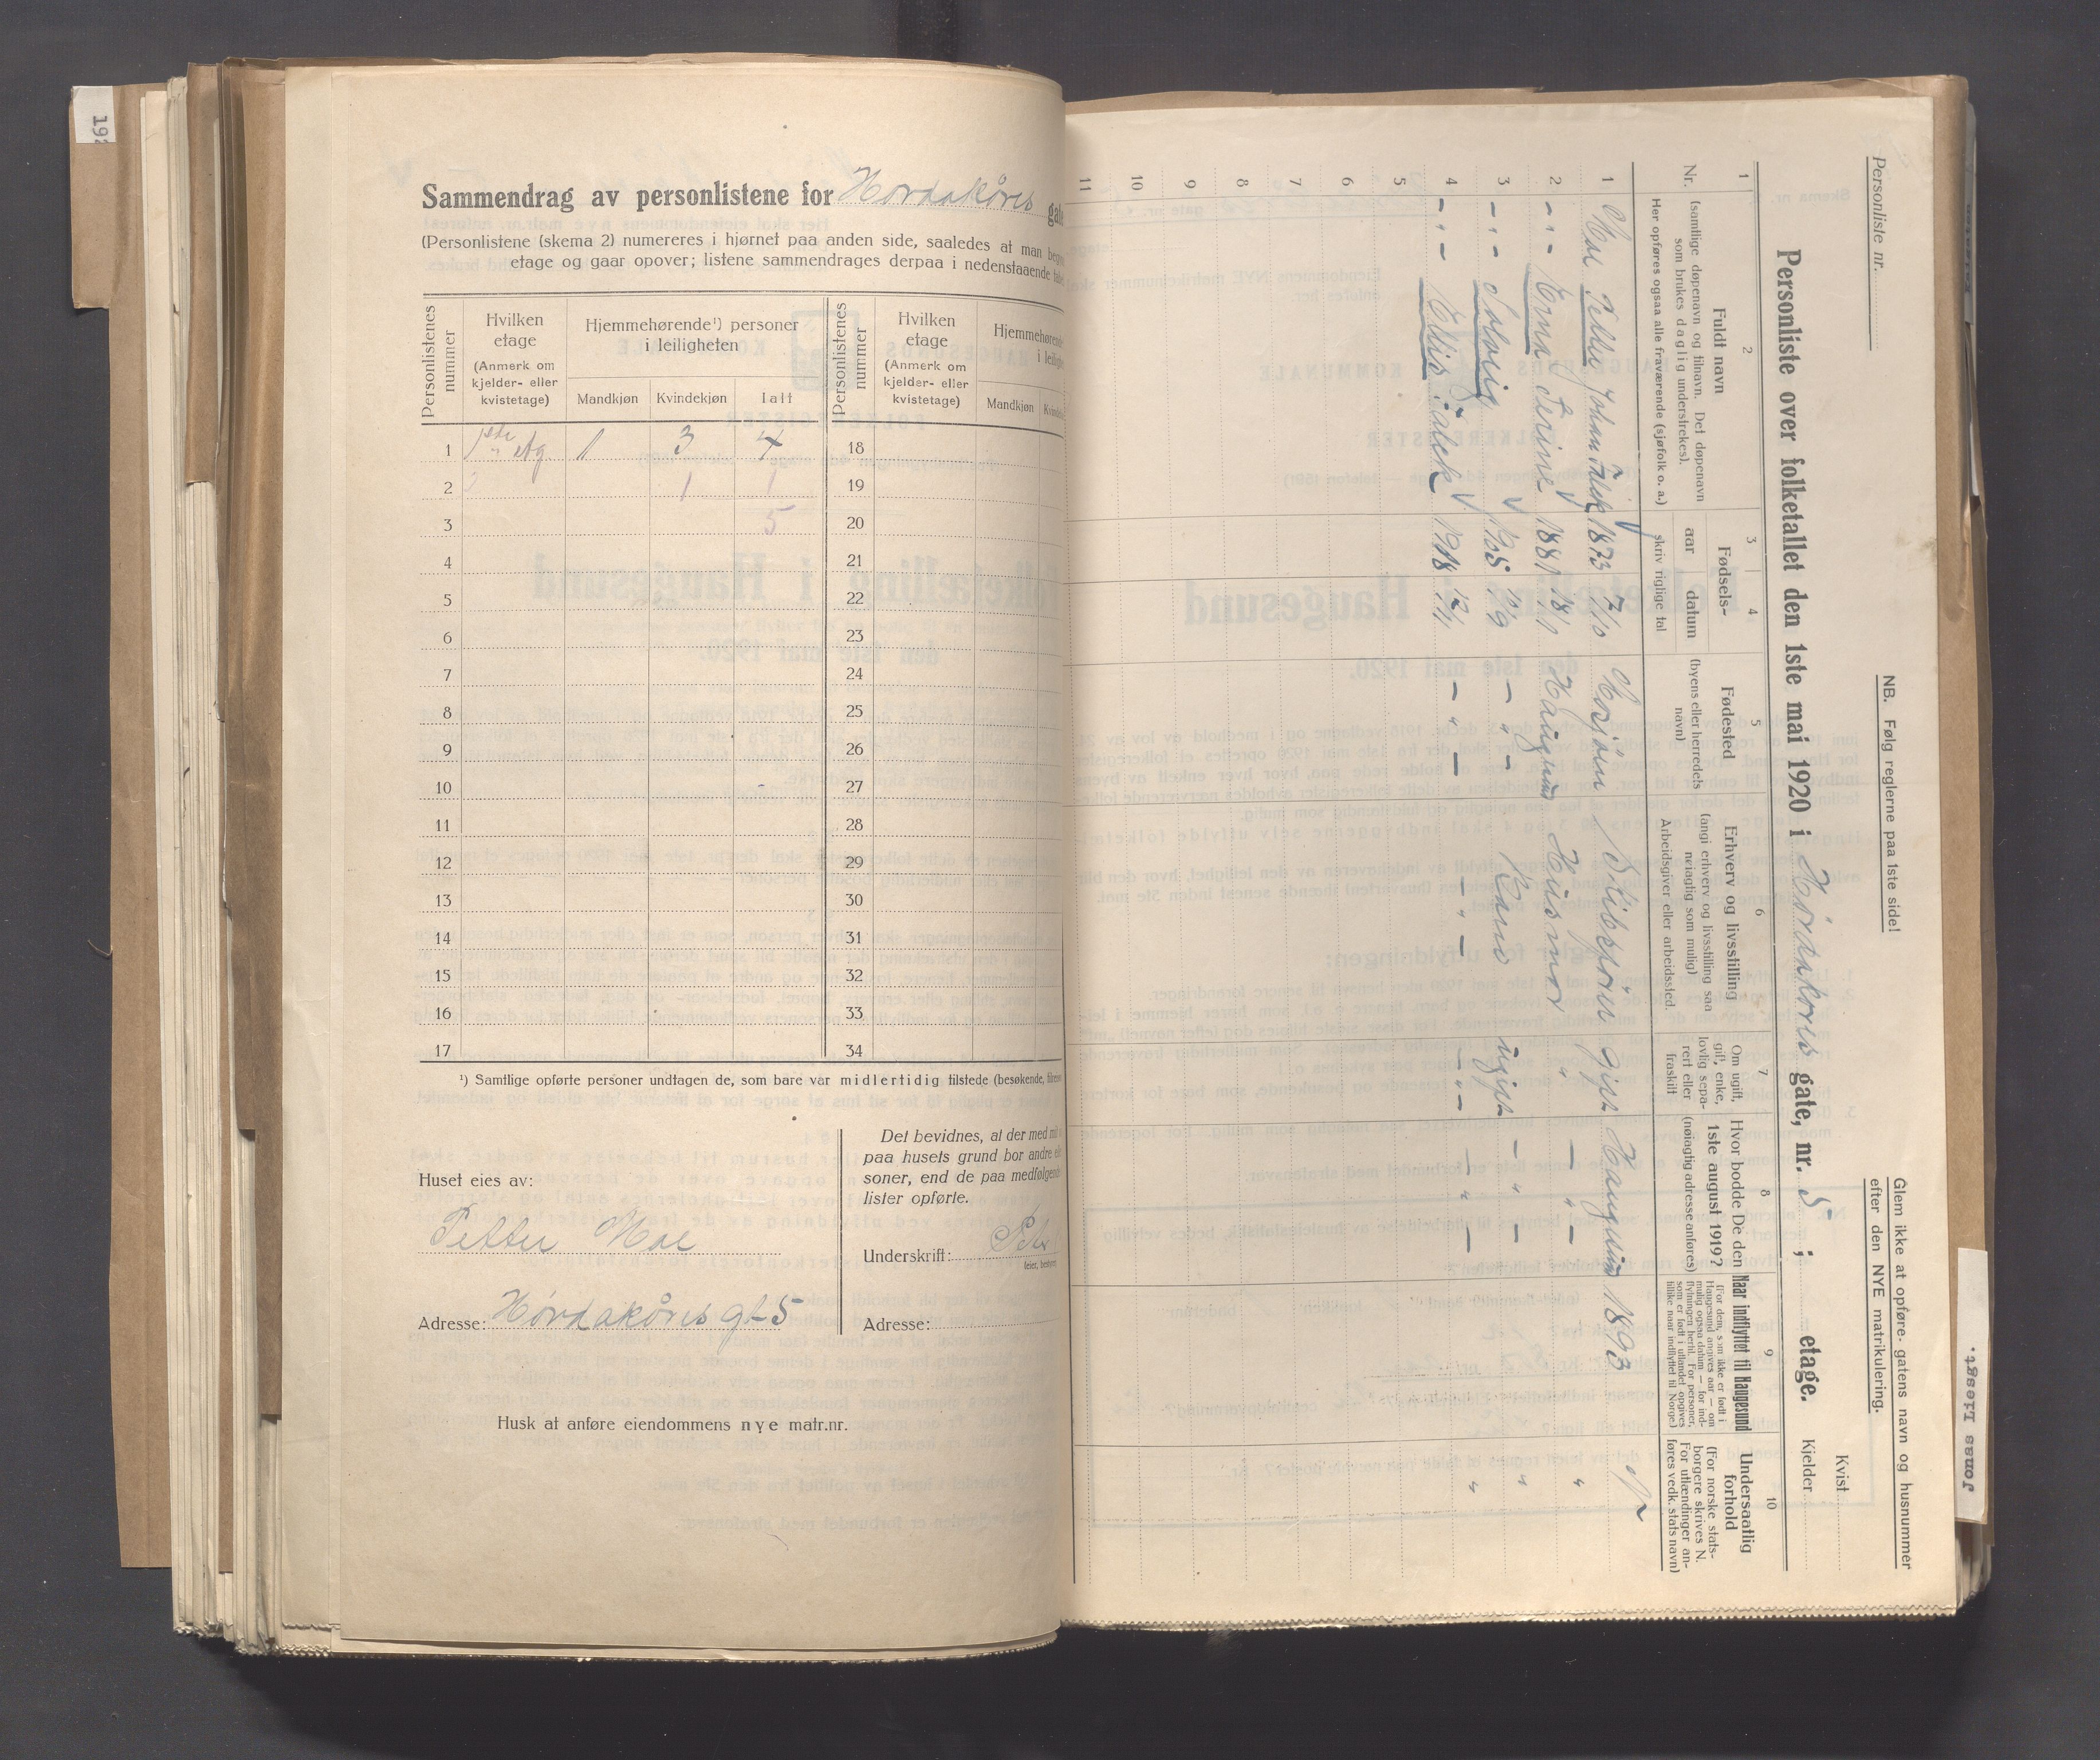 192
Sammendrag av personlistene for Hordakåres gate
(Personlistene (skema 2) numereres i hjørnet paa anden side, saaledes at man
etage og gaar opover; listene sammendrages derpaa i nedenstaaende
Personlistenes nummer
Hvilken etage
(Anmerk om kjelder- eller kvistetage)
Hjemmehørende¹) personer i leiligheten
Mandkjøn Kvindekjøn Ialt
Personlistenes nummer
Hvilken etage
(Anmerk om kjelder- eller kvistetage)
Hjemmehørende
Mandkjøn
1 1ste etg. 1 3 4 18
2 1 1 19
3 5 20
4 21
5 22
6 23
7 24
8 25
9 26
10 27
11 28
12 29
13 30
14 31
15 32
16 33
17 34
¹) Samtlige opførte personer undtagen de, som bare var midlertidig tilstede (besøkende,
Huset eies av:
Petter Moe
Adresse: Hordakåres gt 5
Det bevidnes, at der med
paa husets grund bor andre
soner, end de paa medfølgende
lister opførte.
Underskrift:
Adresse:
Husk at anføre eiendommens nye matr.nr.
Personliste nr.
NB. Følg reglerne paa 1ste side!
Glem ikke at opføre gatens navn og husnummer
efter den NYE matrikulering.
Personliste over folketallet den 1ste mai 1920 i Hordakores gate, nr. 5 ; etage.
Kvist
Kjelder
1 2 3 4 5 6 7 8 9 10
Nr.
Fuldt navn
(samtlige døpenavn og tilnavn. Det døpenavn
som brukes daglig understrekes).
Her opføres ogsaa alle fraværende (sjøfolk o. a.)
Fødsels-
aar datum
skriv riglige tal
Fødested
(byens eller herredets
navn)
Erhverv og livsstilling
(angi erhverv og livsstilling saa
nøiagtig som mulig)
Arbeidsgiver eller arbeidssted.
Om ugift,
gift, enke,
lovlig sepa-
rert eller
fraskilt
Hvor bodde De den
1ste august 1919?
(nøiagtig adresse anføres)
Naar indflyttet til Haugesund
(For dem, som ikke er født i
Haugesund angives aar — om
mulig ogsaa datum — for ind-
flytningen hertil. For personer,
som er født i utlandet opgives
tillike naar indflyttet til Norge.)
Undersaatlig
forhold
(For norske stats-
borgere skrives N.
For utlændinger an-
føres vedk. stats navn)
1 Moe Petter Johan Falck 1873 7/10 Mosjøen gift Haugesund 1893 N
2 - " - Erna Serine 1881 18/1 Haugesund Husmor " - " - "
3 - " - Solveig 1905 19/9 - " - Barn ugift - " - "
4 - " - Ellis Falck 1918 - " - - " - - " - - " - "
5
6
7
8
9
10
11
Jonas Liesgt.